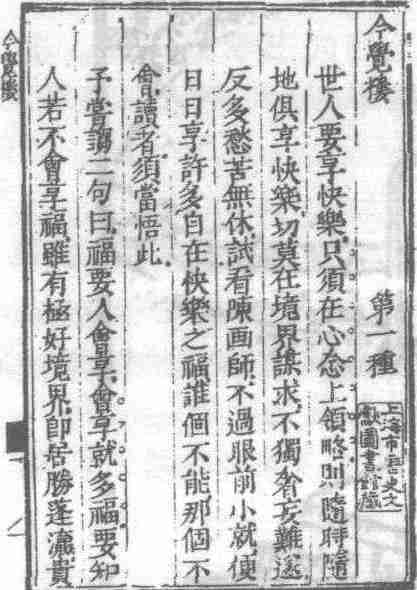 今覺樓
今覺樓
第一種
上海市歷史文
獻圖書館藏
世人要享快樂只須在心念上領略則隨時隨
地俱享快樂切莫在境界謀求不獨奢妄難遂
反多愁苦無休試看陳画師不過眼前小就便
日日享許多自在快樂之福誰個不能那個不
會讀者須當悟此
予嘗謂二句曰福要人會享會享就多福要知
人若不會享福雖有極好境界即居勝蓬瀛貴